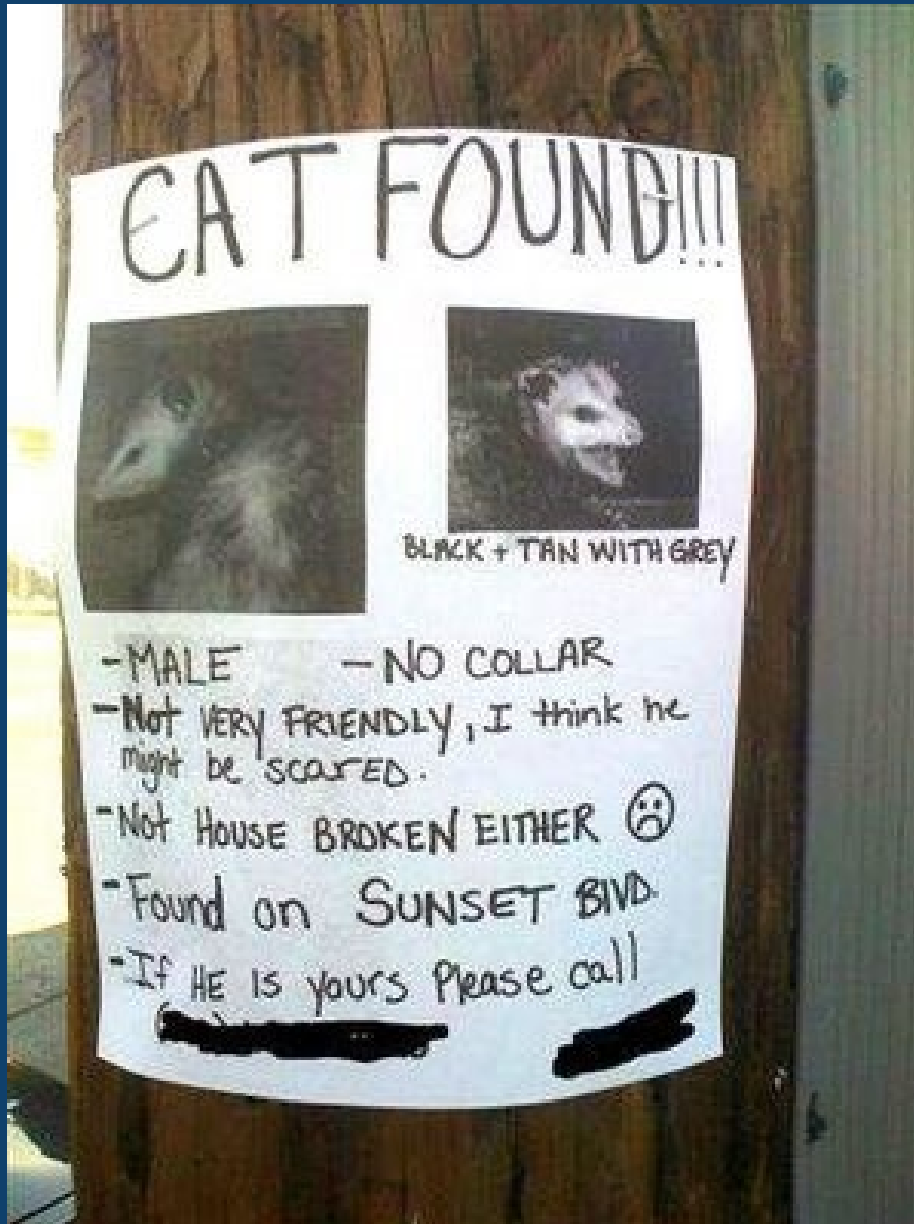 CAT FOUND!!!
BLACK + TAN WITH GREY
-MALE -NO COLLAR
-Not VERY FRIENDLY, I think he
might be scared.
-Not HOUSE BROKEN EITHER ☹
-Found on SUNSET BLVD.
-If HE IS yours Please call